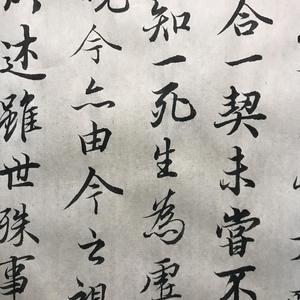 合一契未嘗不
知一死生為虛
今亦由今之視
述雖世殊事